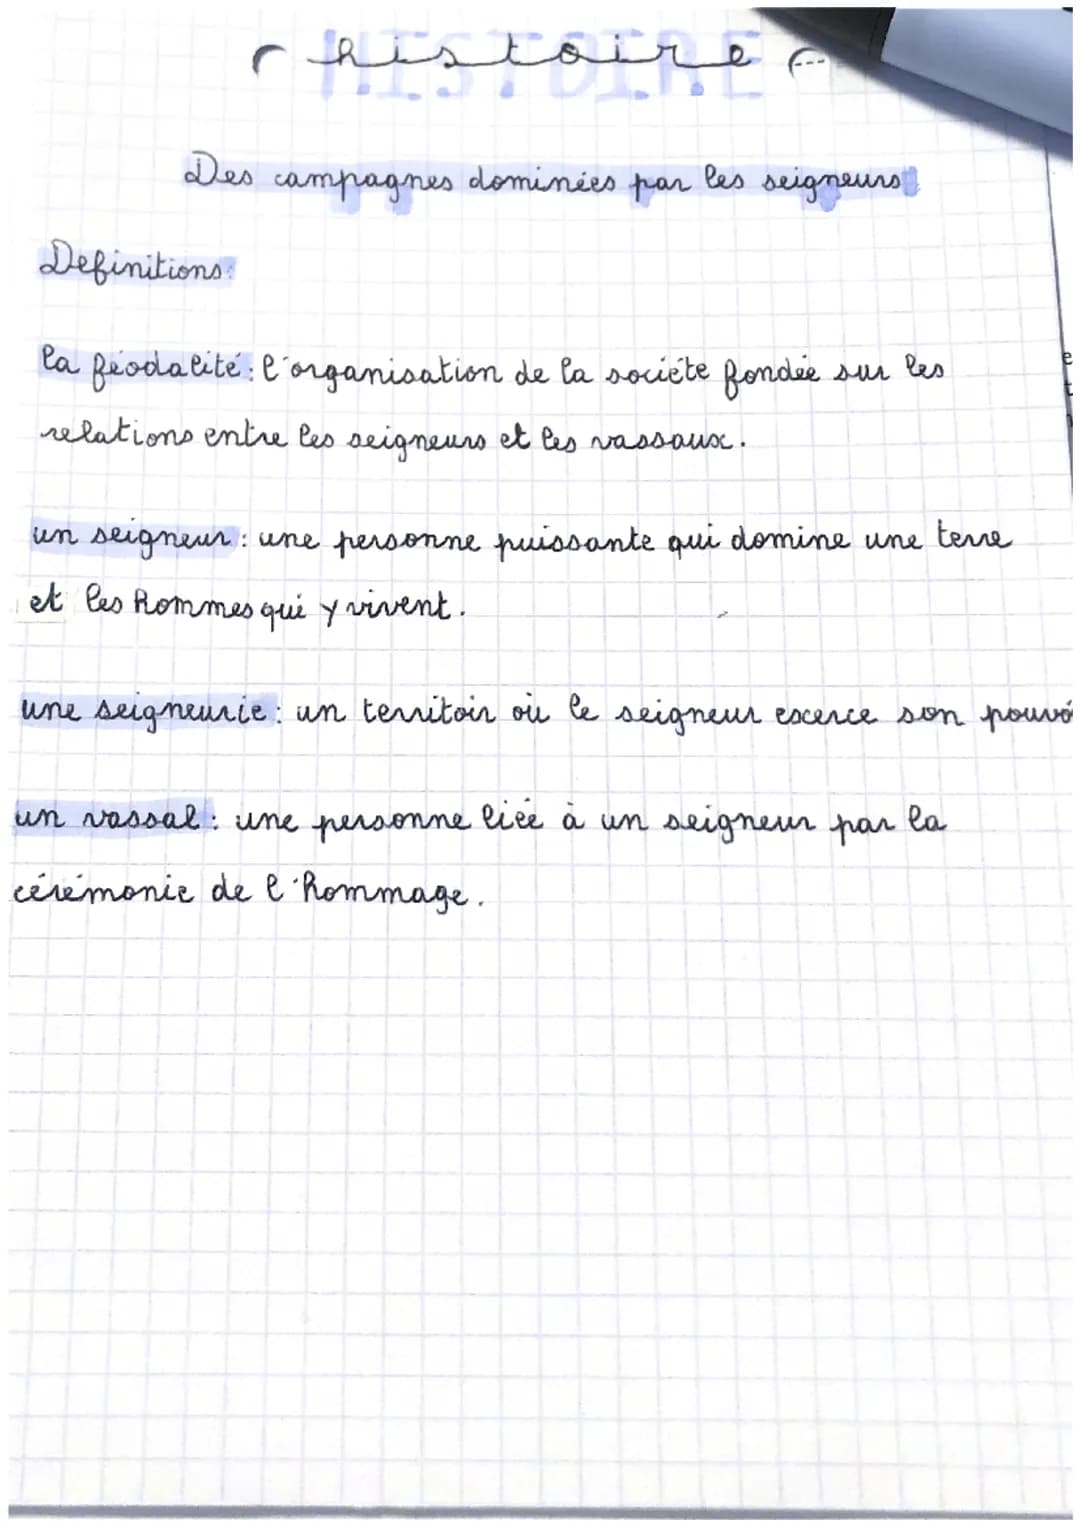 histoire
HISTOIRE
Des campagnes dominées par les seigneurs
Définitions:
la féodalité: l'organisation de la sociéte fondée sur les
relations entre les seigneurs et les vassaux.
un seigneur: une personne puissante qui domine une terre
et les hommes qui y vivent.
une seigneurie: un territoir où le seigneur excerce son pouvo
un vassal: une personne liée à un seigneur par la
cérémonie de l'hommage.